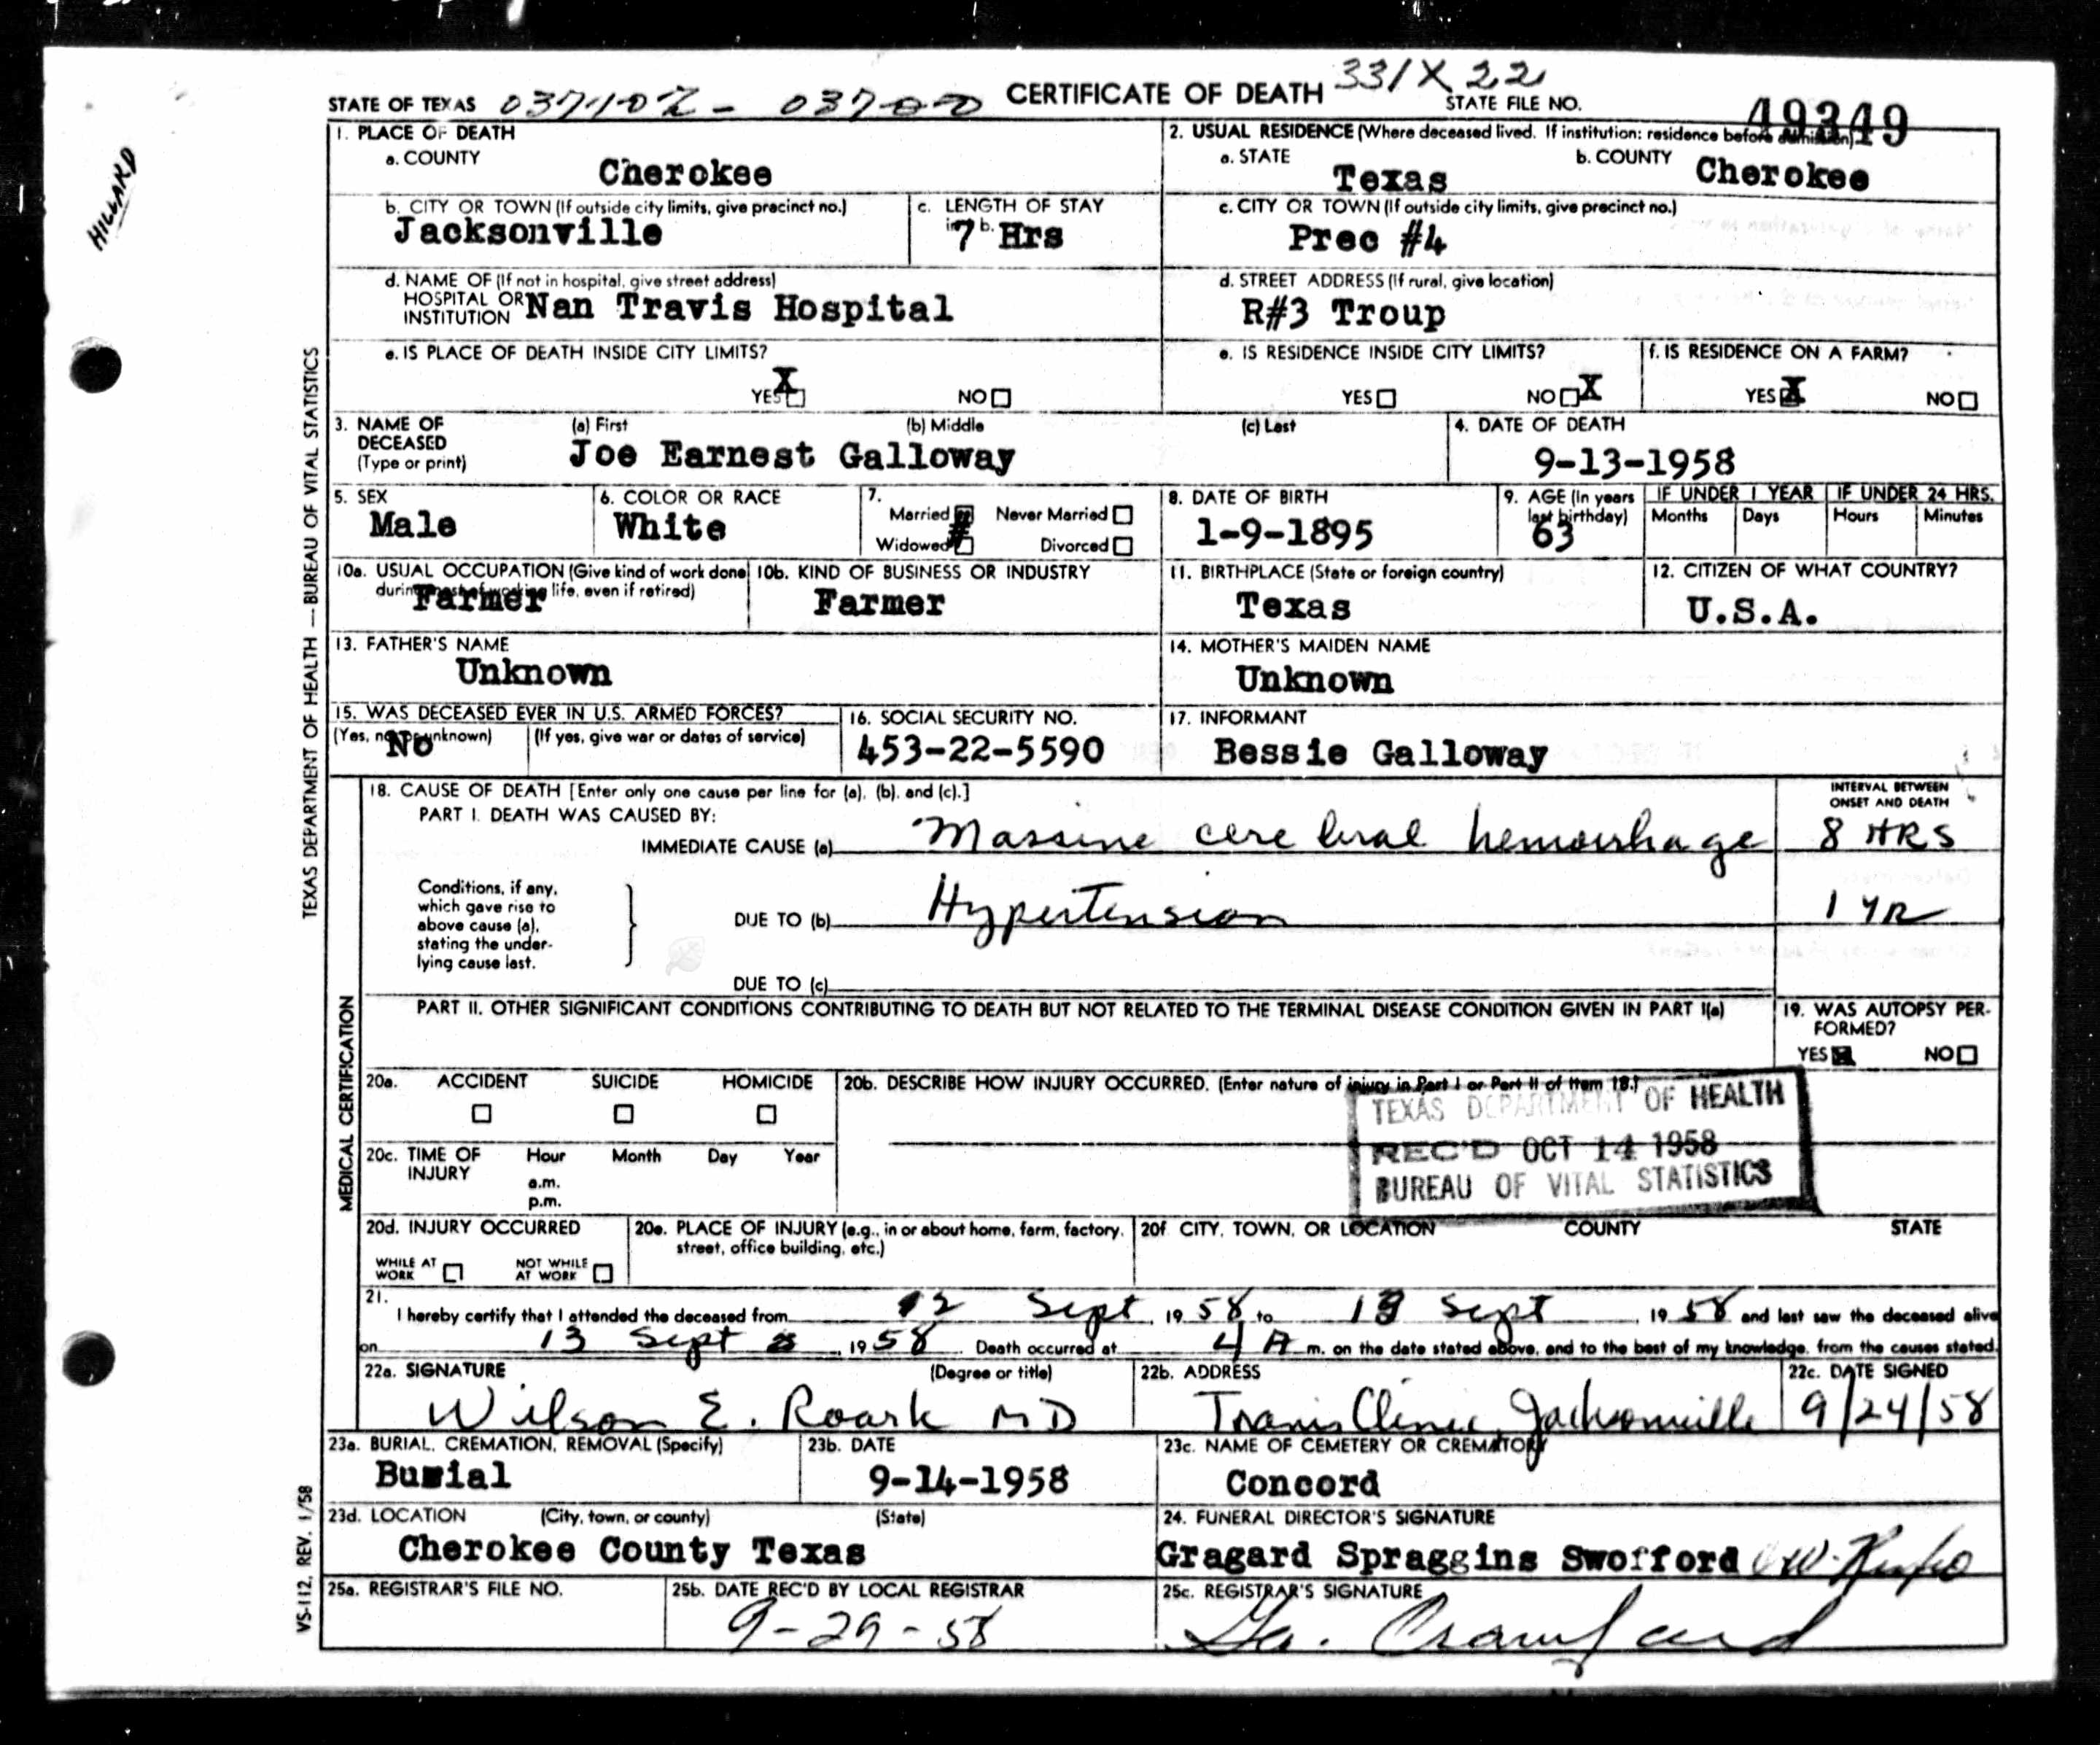 HILLARD
STATE OF TEXAS 037102 - 03700 CERTIFICATE OF DEATH 331X 22 STATE FILE NO. 49349
1. PLACE OF DEATH
a. COUNTY Cherokee
2. USUAL RESIDENCE (Where deceased lived. If institution: residence before admission)
a. STATE Texas b. COUNTY Cherokee
b. CITY OR TOWN (If outside city limits, give precinct no.) Jacksonville
c. LENGTH OF STAY in 1b. 7 Hrs
c. CITY OR TOWN (If outside city limits, give precinct no.) Prec #4
d. NAME OF (If not in hospital, give street address)
HOSPITAL OR
INSTITUTION Nan Travis Hospital
d. STREET ADDRESS (If rural, give location)
R#3 Troup
e. IS PLACE OF DEATH INSIDE CITY LIMITS?
YES X NO
e. IS RESIDENCE INSIDE CITY LIMITS?
YES NO X
f. IS RESIDENCE ON A FARM?
YES X NO
3. NAME OF DECEASED (Type or print)
(a) First (b) Middle (c) Last
Joe Earnest Galloway
4. DATE OF DEATH
9-13-1958
5. SEX
Male
6. COLOR OR RACE
White
7.
Married Never Married
Widowed Divorced
8. DATE OF BIRTH
1-9-1895
9. AGE (In years last birthday)
63
IF UNDER 1 YEAR IF UNDER 24 HRS.
Months Days Hours Minutes
10a. USUAL OCCUPATION (Give kind of work done
during most of working life, even if retired)
Farmer
10b. KIND OF BUSINESS OR INDUSTRY
Farmer
11. BIRTHPLACE (State or foreign country)
Texas
12. CITIZEN OF WHAT COUNTRY?
U.S.A.
13. FATHER'S NAME
Unknown
14. MOTHER'S MAIDEN NAME
Unknown
15. WAS DECEASED EVER IN U.S. ARMED FORCES?
(Yes, no, or unknown) (If yes, give war or dates of service)
No
16. SOCIAL SECURITY NO.
453-22-5590
17. INFORMANT
Bessie Galloway
18. CAUSE OF DEATH [Enter only one cause per line for (a), (b), and (c).]
PART I. DEATH WAS CAUSED BY:
INTERVAL BETWEEN
ONSET AND DEATH
IMMEDIATE CAUSE (a) Massive cerebral hemorrhage 8 HRS
Conditions, if any,
which gave rise to
above cause (a),
stating the under-
lying cause last.
DUE TO (b) Hypertension 1 YR
DUE TO (c)
PART II. OTHER SIGNIFICANT CONDITIONS CONTRIBUTING TO DEATH BUT NOT RELATED TO THE TERMINAL DISEASE CONDITION GIVEN IN PART I(a)
19. WAS AUTOPSY PER-
FORMED?
YES NO
20a. ACCIDENT SUICIDE HOMICIDE
20b. DESCRIBE HOW INJURY OCCURRED. (Enter nature of injury in Part I or Part II of Item 18.)
TEXAS DEPARTMENT OF HEALTH
REC'D OCT 14 1958
BUREAU OF VITAL STATISTICS
20c. TIME OF INJURY
Hour Month Day Year
a.m.
p.m.
20d. INJURY OCCURRED
WHILE AT WORK NOT WHILE AT WORK
20e. PLACE OF INJURY (e.g., in or about home, farm, factory,
street, office building, etc.)
20f. CITY, TOWN, OR LOCATION COUNTY STATE
21.
I hereby certify that I attended the deceased from 12 Sept, 1958 to 13 Sept, 1958 and last saw the deceased alive
on 13 Sept, 1958. Death occurred at 4 A m. on the date stated above, and to the best of my knowledge, from the causes stated.
22a. SIGNATURE (Degree or title)
Wilson E. Roark MD
22b. ADDRESS
Travis Clinic Jacksonville
22c. DATE SIGNED
9/24/58
23a. BURIAL, CREMATION, REMOVAL (Specify)
Burial
23b. DATE
9-14-1958
23c. NAME OF CEMETERY OR CREMATORY
Concord
23d. LOCATION (City, town, or county) (State)
Cherokee County Texas
24. FUNERAL DIRECTOR'S SIGNATURE
Gragard Spraggins Swofford
25a. REGISTRAR'S FILE NO.
25b. DATE REC'D BY LOCAL REGISTRAR
9-29-58
25c. REGISTRAR'S SIGNATURE
Crawford
TEXAS DEPARTMENT OF HEALTH — BUREAU OF VITAL STATISTICS
MEDICAL CERTIFICATION
VS-112, REV. 1/58